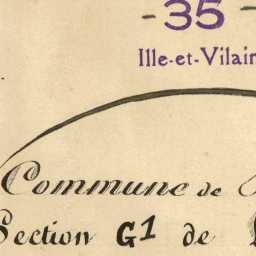 - 35 -
Ille-et-Vilain
Commune de
Section G1 de